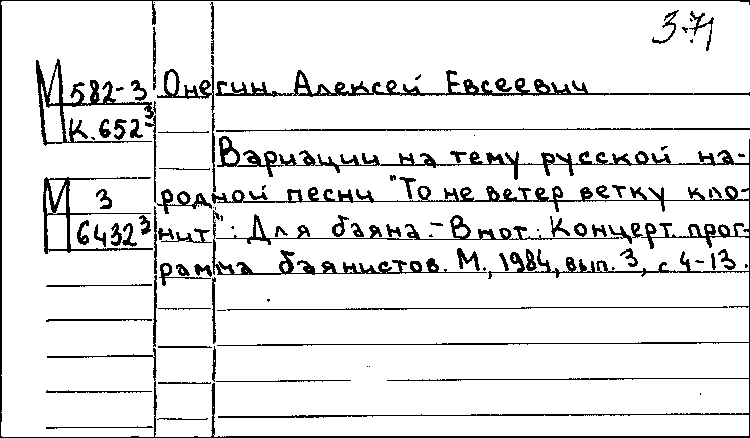 3-71
М 582-3 Онегин, Алексей Евсеевич
К.652³
Вариации на тему русской на-
М 3 родной песни "То не ветер ветку кло-
6432³ нит": Для баяна.-В нот.: Концерт. прог-
рамма баянистов. М., 1984, вып. 3, с 4-13.